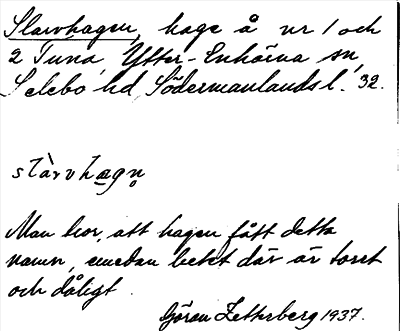 Slarvhagen, hage å nr 1 och
2 Tuna, Ytter-Enhörna sn,
Selebo hd, Södermanlands l. 32.
slàrvhagn̥
Man tror, att hagen fått detta
namn, emedan betet där är torrt
och dåligt.
Göran Zetterberg 1937.